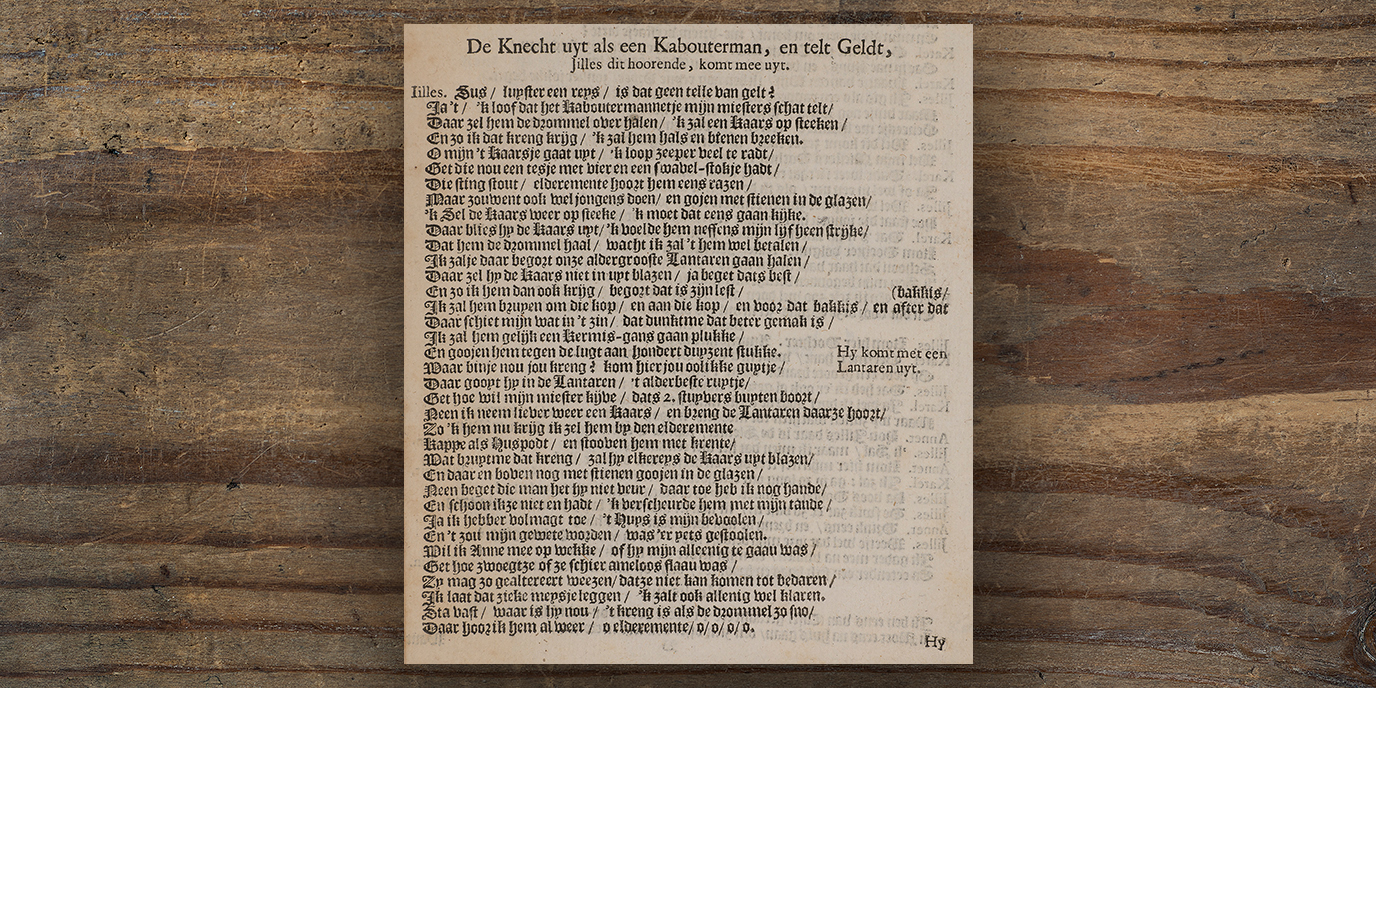 De Knecht uyt als een Kabouterman, en telt Geldt,
Jilles dit hoorende, komt mee uyt.
Iilles. Sus / luyster een reys / is dat geen telle van gelt?
Ja 't / 'k loof dat het Kaboutermannetje mijn miesters schat telt/
Daar zel hem de drommel over halen / 'k zal een Kaars op steeken /
En zo ik dat kreng krijg / 'k zal hem hals en bienen breeken.
O mijn 't Kaarsje gaat uyt / 'k loop zeeper veel te radt/
Get die nou een tesje met vier en een swavel-stokje hadt /
Die sting stout / elderemente hoort hem eens razen /
Maar zouwent ook wel jongens doen/ en gojen met stienen in de glazen/
'k Sel de Kaars weer op steeke / 'k moet dat eens gaan kijke.
Daar blies hy de Kaars uyt/ 'k voelde hem neffens mijn lijf heen strijke/
Dat hem de drommel haal / wacht ik zal 't hem wel betalen /
Ik zalje daar begozt onze aldergrooste Lantaren gaan halen /
Daar zel hy de Kaars niet in uyt blazen / ja beget dats best /
En zo ik hem dan ook krijg / begozt dat is zijn lest / (bakkis/
Ik zal hem bruyen om die kop / en aan die kop / en voor dat bakkis / en after dat
Daar schiet mijn wat in 't zin / dat dunktme dat beter gemak is /
Ik zal hem gelijk een Kermis-gans gaan plukke /
En goojen hem tegen de lugt aan hondert duyzent stukke. Hy komt met een
Waar binje nou jou kreng? kom hier jou oolikke guytje / Lantaren uyt.
Daar gooyt hy in de Lantaren / 't alderbeste ruytje/
Get hoe wil mijn miester kijve / dats 2. stuyvers buyten boort /
Neen ik neem liever weer een Kaars / en breng de Lantaren daarze hoort/
Zo 'k hem nu krijg ik zel hem by den elderemente
Kappe als Huspodt / en stooven hem met krente/
Wat bruytme dat kreng / zal hy elkereys de Kaars uyt blazen/
En daar en boven nog met stienen goojen in de glazen /
Neen beget die man het hy niet veur / daar toe heb ik nog hande/
En schoon ikze niet en hadt / 'k verscheurde hem met mijn tande /
Ja ik hebber volmagt toe / 't Huys is mijn bevoolen /
En 't zou mijn gewete worden / was 'er yets gestoolen.
Wil ik Anne mee op wekke / of hy mijn alleenig te gaau was /
Get hoe zwoegtze of ze schier ameloos flaau was /
Zy mag zo gealtereert weezen/ datze niet kan komen tot bedaren /
Ik laat dat zieke meysje leggen / 'k zalt ook allenig wel klaren.
Sta vast / waar is hy nou / 't kreng is als de drommel zo sno/
Daar hoor ik hem al weer / o elderemente/ o/ o/ o/ o.
Hy